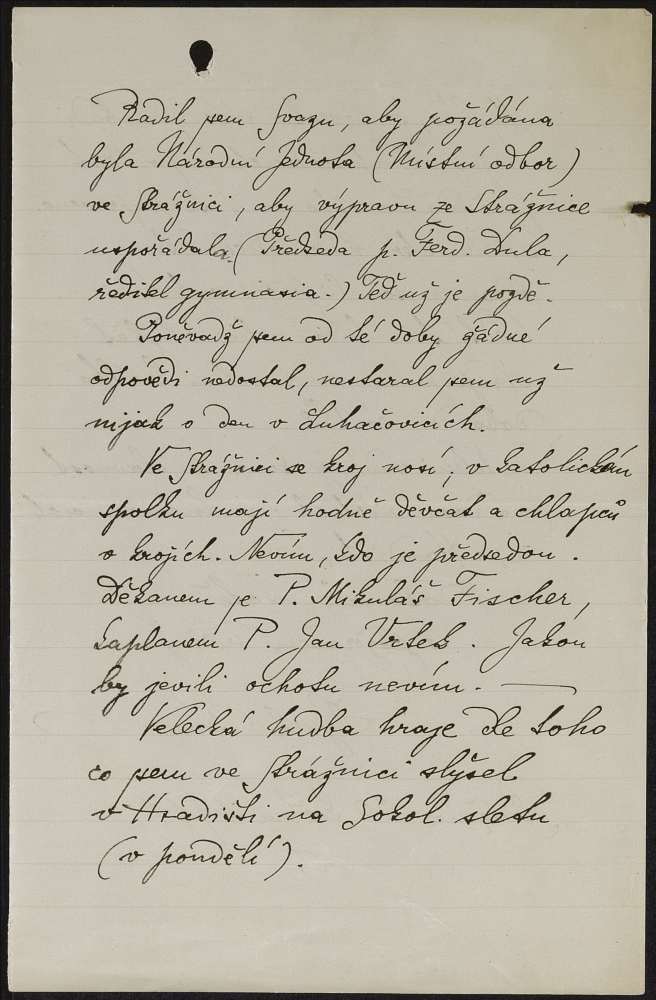 Radil jsem Svazu, aby požádána
byla Národní Jednota (Místní odbor)
ve Strážnici, aby výpravu ze Strážnice
uspořádala (Předseda p. Ferd. Dula,
ředitel gymnasia.) Teď už je pozdě.
Poněvadž jsem od té doby žádné
odpovědi nedostal, nestaral jsem už
nijak o den v Luhačovicích.
Ve Strážnici se kroj nosí, v katolickém
spolku mají hodně děvčat a chlapců
v krojích. Nevím, kdo je předsedou.
Děkanem je P. Mikuláš Fischer,
kaplanem P. Jan Vrtek. Jakou
by jevili ochotu nevím. —
Velecká hudba hraje dle toho
co jsem ve Strážnici slyšel
v Hradišti na Sokol. sletu
(v pondělí).